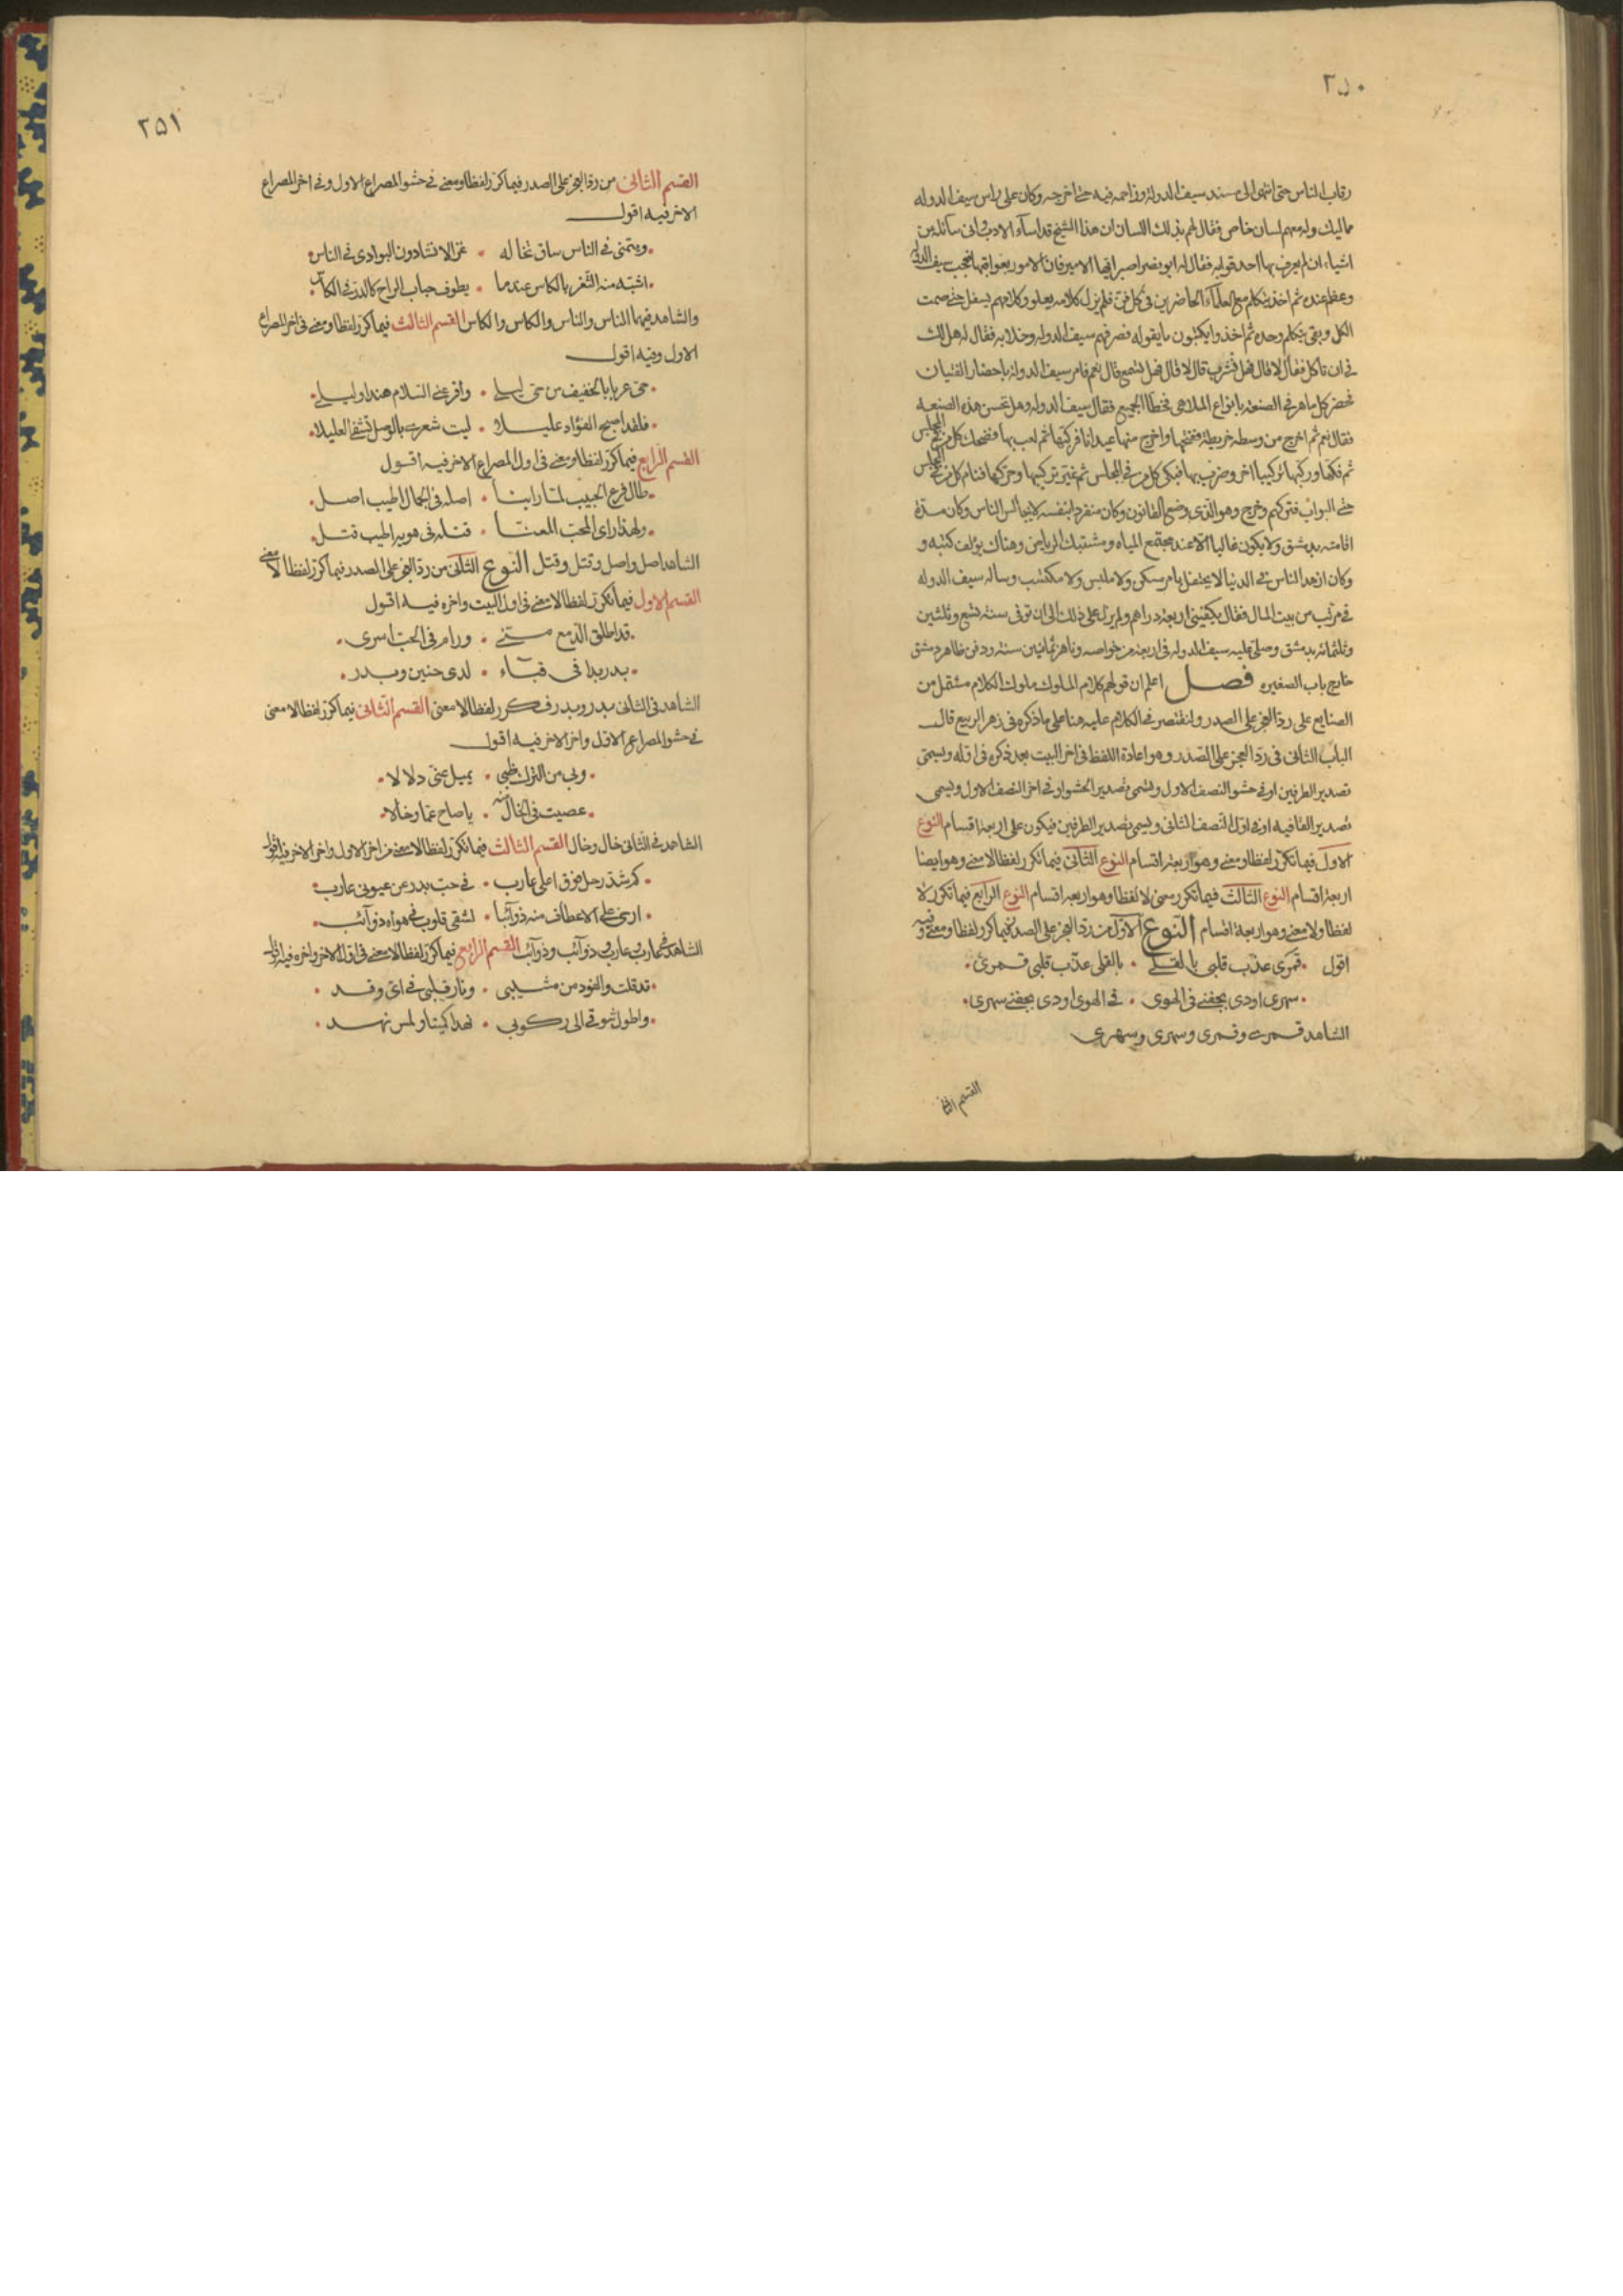 ٢٥٠
رقاب الناس حتى انتهى الى مسند سيف الدولة وزاحمه فيه حتى اخرجه وكان على راس سيف الدوله
مماليك وله معهم لسان خاص فقال لهم بذلك اللسان ان هذا الشيخ قد اساء الادب وانى سائله عن
اشياء ان لم يعرف بها احد قوله فقال له ابو نصر اصبر ايها الامير فان الامور بعواقبها فعجب سيف الدولة
وعظم عنده ثم اخذ يتكلم مع العلماء الحاضرين فى كل فن فلم يزل كلامه يعلو وكلامهم يسفل حتى صمت
الكل وبقى يتكلم وحده ثم اخذوا يكتبون ما يقوله فصرفهم سيف الدوله وخلا به فقال له هل لك
فى ان تاكل فقال لا قال فهل تشرب قال لا قال فهل تسمع قال نعم فامر سيف الدولة باحضار القيان
فحضر كل ماهر فى الصنعة بانواع الملاهى فخطأ الجميع فقال سيف الدوله وهل تحسن هذه الصنعه
فقال نعم ثم اخرج من وسطه خريطة ففتحها واخرج منها عيدانا فركبها ثم لعب بها فضحك كل من فى المجلس
ثم فكها وركبها تركيبا اخر وضرب بها فبكى كل من فى المجلس ثم غير تركيبها وحركها فنام كل من فى المجلس
حتى البواب فتركهم وخرج وهو الذى وضع القانون وكان منفردا بنفسه لا يجالس الناس وكان مدة
اقامته بدمشق ولا يكون غالبا الا عند مجتمع المياه ومشتبك الرياض وهناك يؤلف كتبه و
وكان ازهد الناس فى الدنيا لا يحتفل بامر سكن ولا ملبس ولا مكتسب وساله سيف الدوله
فى مرتب من بيت المال فقال يكفينى اربعة دراهم ولم يزل على ذلك الى ان توفى سنة تسع وثلثين
وثلثمائه بدمشق وصلى عليه سيف الدوله فى اربعة من خواصه وناهز ثمانين سنة ودفن ظاهر دمشق
خارج باب الصغيره فصل اعلم ان قولهم كلام الملوك ملوك الكلام مشتمل من
الصنايع على رد العجز على الصدر ولنقتصر فى الكلام عليه هنا على ما ذكره فى زهر الربيع قال
الباب الثانى فى رد العجز على الصدر وهو اعادة اللفظ فى اخر البيت بعد ذكره فى اوله ويسمى
تصدير الطرفين او فى حشو النصف الاول ويسمى تصدير الحشو او فى اخر النصف الاول ويسمى
تصدير القافيه او فى اول النصف الثانى ويسمى تصدير الطرفين فيكون على اربعة اقسام النوع
الاول فيما تكرر لفظا ومعنى وهو اربعة اقسام النوع الثانى فيما تكرر لفظا لا معنى وهو ايضا
اربعة اقسام النوع الثالث فيما تكرر معنى لا لفظا وهو اربعة اقسام النوع الرابع فيما تكرر لا
لفظا ولا معنى وهو اربعة اقسام النوع الاول من رد العجز على الصدر فيما كرر لفظا ومعنى وفيه
اقول قمرى عذب قلبى بالقلى بالقلى عذب قلبى قمرى
سهرى اودى بجفنى فى الهوى فى الهوى اودى بجفنى سهرى
الشاهد قمرى وقمرى وسهرى وسهرى
القسم الثانى
٢٥١
القسم الثانى من رد العجز على الصدر فيما كرر لفظا ومعنى فى حشو المصراع الاول وفى اخر المصراع
الاخر فيه اقول
ومتمنى فى الناس ساق تخاله غزالا نشا دون البوادى فى الناس
اشبه منه الثغر بالكاس عندما يطوف حباب الراح كالدر فى الكاس
والشاهد فيهما الناس والناس والكاس والكاس القسم الثالث فيما كرر لفظا ومعنى فى اخر المصراع
الاول وفيه اقول
حى عربا بالخفيف من حى ليلى واقر عنى السلام هندا وليلى
فلقد اصبح الفؤاد عليلا ليت شعرى بالوصل تشفى العليلا
القسم الرابع فيما كرر لفظا ومعنى فى اول المصراع الاخر فيه اقول
طال فرع الحبيب لما راينا اصله فى الجمال اطيب اصل
ولهذا راى المحب المعنا قتله فى هويه اطيب قتل
الشاهد اصل واصل وقتل وقتل النوع الثانى من رد العجز على الصدر فيما كرر لفظا لا معنى
القسم الاول فيما تكرر لفظا لا معنى فى اول البيت واخره فيه اقول
قد اطلق الدمع منى ورام فى الحب اسرى
بدر بدا فى قباء لدى حنين وبدر
الشاهد فى الثانى بدر وبدر فكرر لفظا لا معنى القسم الثانى فيما كرر لفظا لا معنى
فى حشو المصراع الاول واخر الاخر فيه اقول
وبى من الترك ظبى يميل عنى دلالا
عصيت فى الخال منه يا صاح عما وخالا
الشاهد فى الثانى خال وخال القسم الثالث فيما تكرر لفظا لا معنى من اخر الاول واخر الاخر فيه اقول
كم شد رحل فوق اعلى غارب فى حب بدر عن عيونى غارب
ارخى على الاعطاف منه ذوآئبا لشقى قلوب فى هواه ذوآئب
الشاهد فى غارب غارب وذوآئب وذوآئب القسم الرابع فيما كرر لفظا لا معنى فى اول الاخر واخره فيه اقول
قد قلت والفود من مشيبى ونار قلبى فى اى وقد
واطول شوقى الى ركوبى نهدا كميتا ولمس نهد